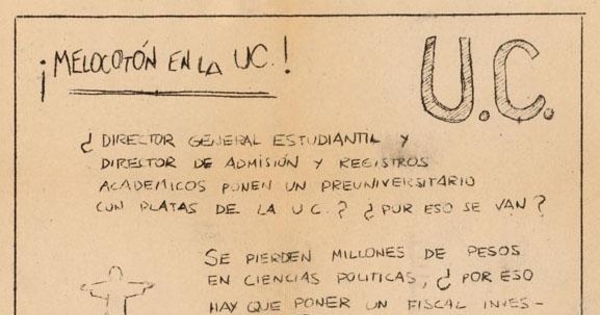 ¡MELOCOTÓN EN LA UC.!
U.C.
¿ DIRECTOR GENERAL ESTUDIANTIL Y
DIRECTOR DE ADMISIÓN Y REGISTROS
ACADEMICOS PONEN UN PREUNIVERSITARIO
CON PLATAS DE LA UC.? ¿POR ESO SE VAN?
SE PIERDEN MILLONES DE PESOS
EN CIENCIAS POLITICAS, ¿ POR ESO
HAY QUE PONER UN FISCAL INVES-